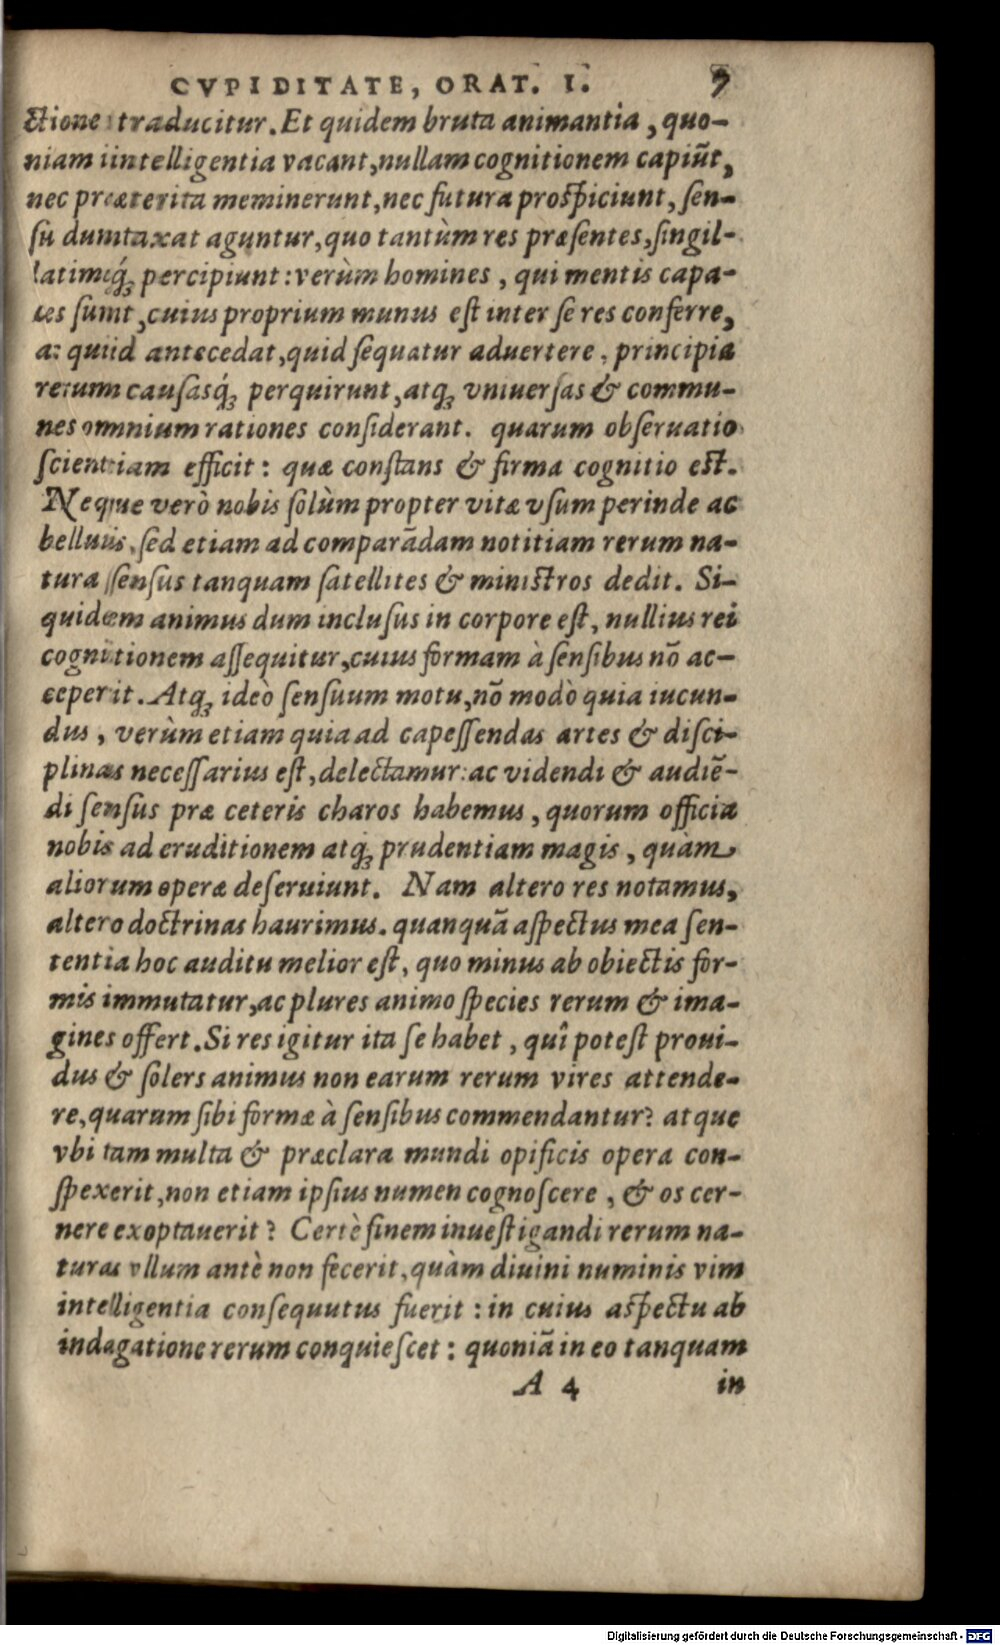 CVPIDITATE, ORAT. I. 7
ctione traducitur. Et quidem bruta animantia, quo-
niam intelligentia vacant, nullam cognitionem capiūt,
nec præterita meminerunt, nec futura prospiciunt, sen-
su dumtaxat aguntur, quo tantùm res præsentes, singil-
latimq́; percipiunt: verùm homines, qui mentis capa-
ces sunt, cuius proprium munus est inter se res conferre,
ac quid antecedat, quid sequatur aduertere, principia
rerum causasq́; perquirunt, atq; vniuersas & commu-
nes omnium rationes considerant. quarum obseruatio
scientiam efficit: quæ constans & firma cognitio est.
Neque verò nobis solùm propter vitæ vsum perinde ac
belluis, sed etiam ad comparādam notitiam rerum na-
tura sensus tanquam satellites & ministros dedit. Si-
quidem animus dum inclusus in corpore est, nullius rei
cognitionem assequitur, cuius formam à sensibus nō ac-
ceperit. Atq; ideò sensuum motu, nō modò quia iucun-
dus, verùm etiam quia ad capessendas artes & disci-
plinas necessarius est, delectamur: ac videndi & audiē-
di sensus præ ceteris charos habemus, quorum officia
nobis ad eruditionem atq́; prudentiam magis, quàm
aliorum operæ deseruiunt. Nam altero res notamus,
altero doctrinas haurimus. quanquā aspectus mea sen-
tentia hoc auditu melior est, quo minus ab obiectis for-
mis immutatur, ac plures animo species rerum & ima-
gines offert. Si res igitur ita se habet, quî potest proui-
dus & solers animus non earum rerum vires attende-
re, quarum sibi formæ à sensibus commendantur? atque
vbi tam multa & præclara mundi opificis opera con-
spexerit, non etiam ipsius numen cognoscere, & os cer-
nere exoptauerit? Certè finem inuestigandi rerum na-
turas vllum antè non fecerit, quàm diuini numinis vim
intelligentia consequutus fuerit: in cuius aspectu ab
indagatione rerum conquiescet: quoniā in eo tanquam
A 4 in
Digitalisierung gefördert durch die Deutsche Forschungsgemeinschaft - DFG